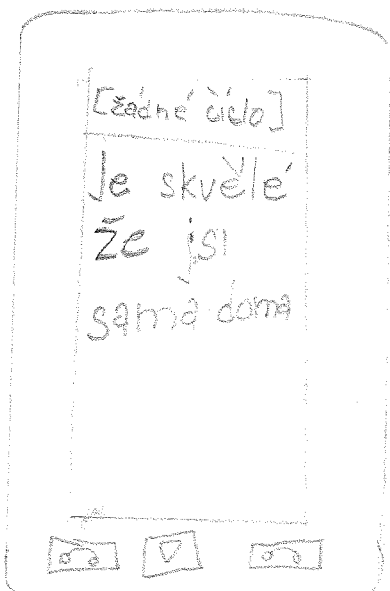 [žádné číslo]
Je skvělé
že jsi
sama doma